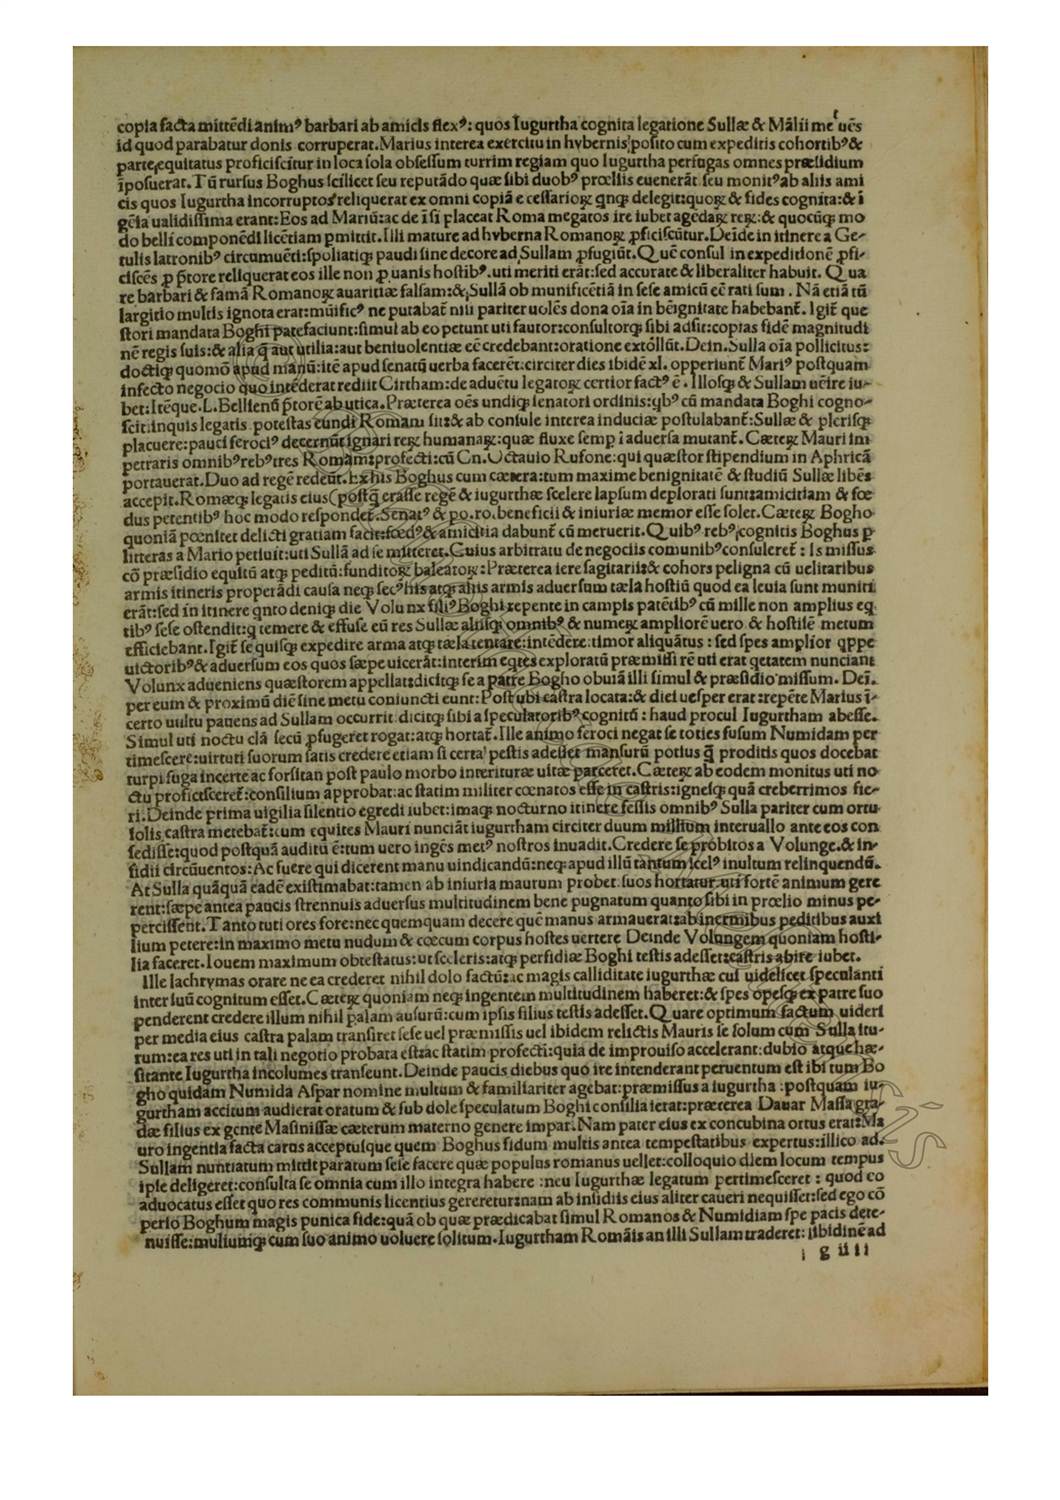 copia facta mittēdi animꝰ barbari ab amicis flexꝰ: quos Iugurtha cognita legatione Sullæ & Mālii me uēs
id quod parabatur donis corruperat. Marius interea exercitu in hybernis posito cum expeditis cohortibꝰ &
parte equitatus proficiscitur in loca sola obsessum turrim regiam quo Iugurtha perfugas omnes præsidium
īposuerat. Tū rursus Boghus scilicet seu reputādo quæ sibi duobꝰ prœliis euenerāt seu monitꝰ ab aliis ami
cis quos Iugurtha incorruptos reliquerat ex omni copia necessarioꝝ qnqꝫ delegit: quoꝝ & fides cognita: & i
gēia ualidissima erant: Eos ad Mariū: ac de ī si placeat Roma megatos ire iubet agēdaꝝ reꝝ: & quocūqꝫ mo
do belli componēdi licētiam ꝑmittit. Illi mature ad hyberna Romanoꝝ ꝓficiscūtur. Deīde in itinere a Ge-
tulis latronibꝰ circumuēti: spoliatiqꝫ pauidi sine decore ad Sullam ꝓfugiūt. Quē consul in expeditionē ꝓfi-
ciscēs ꝓ ꝑtore reliquerat eos ille non ꝓ uanis hostibꝰ. uti meriti erāt: sed accurate & liberaliter habuit. Qua
re barbari & famā Romanoꝝ auaritiæ falsam: & Sullā ob munificētiā in sese amicū eē rati sunt. Nā etiā tū
largitio multis ignota erat: mūificꝰ ne putabat̄ nisi pariter uolēs dona oīa in bēignitate habebant̄. Igit̄ que
stori mandata Boghi patefaciunt: simul ab eo petunt uti fautor: consultorqꝫ sibi adsit: copias fidē magnitudi
nē regis suis: & alia q̄ aut utilia: aut beniuolentiæ eē credebant: oratione extollūt. Dein. Sulla oīa pollicitus:
doctiqꝫ quomō apud mariū: itē apud senatū uerba facerēt: circiter dies ibidē xl. opperiunt̄ Mariꝰ postquam
infecto negocio quo intēderat rediit Cirtham: de aduētu legatoꝝ certior factꝰ ē. Illosqꝫ & Sullam uēire iu-
bet: Itēque. L. Bellienū ꝑtorē ab utica. Præterea oēs undiqꝫ senatori ordinis: qbꝰ cū mandata Boghi cogno-
scit. inquis legatis potestas eundi Romam sit: & ab consule interea induciæ postulabant̄: Sullæ & plerisqꝫ
placuere: pauci ferociꝰ decernūt ignari reꝝ humanaꝝ: quæ fluxe semꝑ ī aduersa mutant̄. Cæteꝝ Mauri im
petratis omnibꝰ rebꝰ tres Romam: profecti: cū Cn. Octauio Rufone: qui quæstor stipendium in Aphricā
portauerat. Duo ad regē redeūt. Ex his Boghus cum cætera: tum maxime benignitatē & studiū Sullæ libēs
accepit. Romæqꝫ legatis eius (postq̄ errasse regē & iugurthæ scelere lapsum deplorati sunt: amicitiam & fœ
dus petentibꝰ hoc modo respondet. Senatꝰ & po. ro. beneficii & iniuriæ memor esse solet. Cæteꝝ Bogho
quoniā pœnitet delicti gratiam facit: fœdꝰ & amicitia dabunt̄ cū meruerit. Quibꝰ rebꝰ cognitis Boghus ꝑ
litteras a Mario petiuit: uti Sullā ad se mitteret. Cuius arbitratu de negociis comunibꝰ consuleret̄: Is missus
cō præsidio equitū atqꝫ peditū: funditoꝝ baleatoꝝ: Præterea iere sagitarii: & cohors peligna cū uelitaribus
armis itineris properādi causa neqꝫ secꝰ his atqꝫ aliis armis aduersum tæla hostiū quod ea leuia sunt muniti
erāt: sed in itinere qnto deniqꝫ die Volunx filiꝰ Boghi repente in campis patētibꝰ cū mille non amplius eq
tibꝰ sese ostendit: q temere & effuse eū res Sullæ aliisqꝫ omnibꝰ & numeꝝ ampliorē uero & hostilē metum
efficiebant. Igit̄ se quisqꝫ expedire arma atqꝫ tæla tentare: intēdere: timor aliquātus: sed spes amplior qppe
uictoribꝰ & aduersum eos quos sæpe uicerāt: interim eqtes exploratū præmissi rē uti erat qetatem nunciant
Volunx adueniens quæstorem appellat: dicitqꝫ se a patre Bogho obuiā illi simul & præsidio missum. Deī.
per eum & proximū diē sine metu coniuncti eunt: Post ubi castra locata: & diei uesper erat: repēte Marius ī-
certo uultu pauens ad Sullam occurrit. dicitqꝫ sibi a speculatoribꝰ cognitū: haud procul Iugurtham abesse.
Simul uti noctu clā secū ꝓfugeret rogat: atqꝫ hortat̄. Ille animo feroci negat se toties fusum Numidam per
timescere: uirtuti suorum satis credere etiam si certa pestis adesset mansurū potius q̄ proditis quos docebat
turpi fuga incerte ac forsitan post paulo morbo interituræ uitæ parceret. Cæteꝝ ab eodem monitus uti no-
ctu proficisceret̄: consilium approbat: ac statim militer cœnatos esse in castris: ignesqꝫ quā creberrimos fie-
ri. Deinde prima uigilia silentio egredi iubet: imaqꝫ nocturno itinere fessis omnibꝰ Sulla pariter cum ortu
solis castra metebat̄: cum equites Mauri nunciāt iugurtham circiter duum millium interuallo ante eos con
sedisse: quod postquā auditū ē: tum uero ingēs metꝰ nostros inuadit. Credere se proditos a Volunge. & in-
sidii circūuentos: Ac fuere qui dicerent manu uindicandū: neqꝫ apud illū tantum scelꝰ inultum relinquendū.
At Sulla quāquā eadē existimabat: tamen ab iniuria maurum probet. suos hortatur. uti fortē animum gere
rent: sæpe antea paucis strennuis aduersus multitudinem bene pugnatum quanto sibi in prœlio minus pe-
percissent. Tanto tuti ores fore: nec quemquam decere quē manus armauerat: ab inermibus peditibus auxi
lium petere: in maximo metu nudum & cœcum corpus hostes uertere Deinde Volungem quoniam hosti-
lia faceret. Iouem maximum obtestatus: ut sceleris: atqꝫ perfidiæ Boghi testis adesset: castris abire iubet.
Ille lachrymas orare ne ea crederet nihil dolo factū: ac magis calliditate iugurthæ cui uidelicet speculanti
inter suū cognitum esset. Cæteꝝ quoniam neqꝫ ingentem multitudinem haberet: & spes opesqꝫ ex patre suo
penderent credere illum nihil palam ausurū: cum ipsis filius testis adesset. Quare optimum factum uideri
per media eius castra palam transiret sese uel præmissis uel ibidem relictis Mauris se solum cum Sulla itu-
rum: ea res uti in tali negotio probata est: ac statim profecti: quia de improuiso accelerant: dubio atque hæ-
sitante Iugurtha incolumes transeunt. Deinde paucis diebus quo ire intenderant peruentum est ibi tum Bo
gho quidam Numida Aspar nomine multum & familiariter agebat: præmissus a iugurtha: postquam iu-
gurtham accitum audierat oratum & sub dole speculatum Boghi consilia ierat: præterea Dauar Massa gra-
dæ filius ex gente Masinissæ cæterum materno genere impar. Nam pater eius ex concubina ortus erat: Ma
uro ingentia facta carus acceptusque quem Boghus fidum multis antea tempestatibus expertus: illico ad.
Sullam nuntiatum mittit paratum sese facere quæ populus romanus uellet: colloquio diem locum tempus
ipse deligeret: consulta se omnia cum illo integra habere: neu Iugurthæ legatum pertimesceret: quod eo
aduocatus esset quo res communis licentius gereretur: nam ab insidiis eius aliter caueri nequisset: sed ego cō
perio Boghum magis punica fide: quā ob quæ prædicabat simul Romanos & Numidiam spe pacis dete-
nuisse: multumqꝫ cum suo animo uoluere solitum. Iugurtham Romāis an illi Sullam traderet: libidinē ad
g iiii